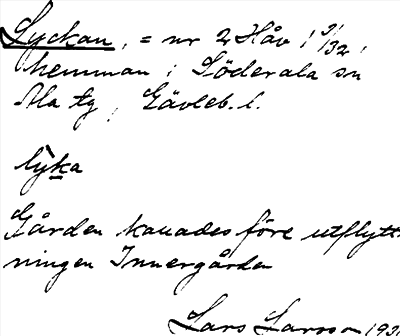 Lyckan, = nr 2 Håv, 9/32,
hemman i Söderala sn
Ala tg, Gävleb. l.
lỳka
Gården kanades före utflytt-
ningen Innergården
Lars Larsson 193